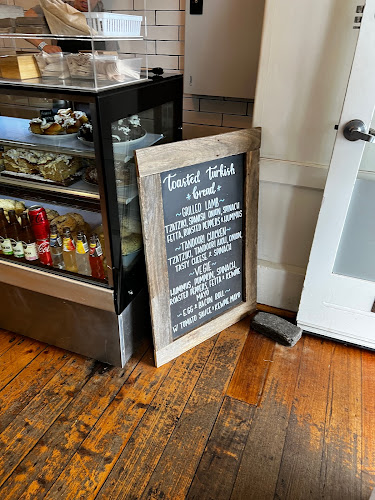 Toasted Turkish
* Bread *
~ GRILLED LAMB ~
TZATZIKI, SPANISH ONION, SPINACH
FETTA, ROASTED PEPPERS & HUMMUS
~ TANDOORI CHICKEN ~
TZATZIKI, TANDOORI AIOLI, ONION,
TASTY CHEESE & SPINACH
~ VEGIE ~
HUMMUS, PUMPKIN, SPINACH,
ROASTED PEPPERS, FETTA & KEWPIE
MAYO
~ EGG & BACON ROLL ~
W TOMATO SAUCE & KEWPIE MAYO